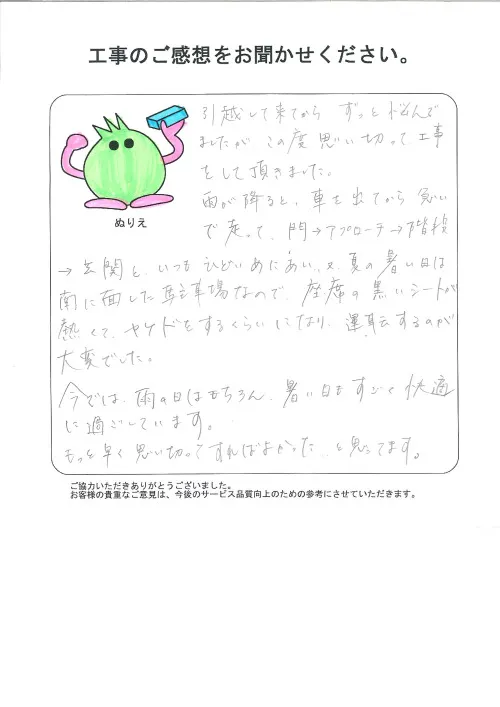 工事のご感想をお聞かせください。
引越して来てから ずっと悩んで
ましたが この度思い切って工事
をして頂きました。
雨が降ると、車を出てから 急い
で走って、門→アプローチ→階段
ぬりえ
→玄関と、いつもひどいめにあい、又、夏の暑い日は
南に面した駐車場なので、座席の黒いシートが
熱くて、ヤケドをするくらいになり、運転するのが
大変でした。
今では、雨の日はもちろん、暑い日もすごく快適
に過ごしています。
もっと早く思い切ってすればよかった、と思ってます。
ご協力いただきありがとうございました。
お客様の貴重なご意見は、今後のサービス品質向上のための参考にさせていただきます。